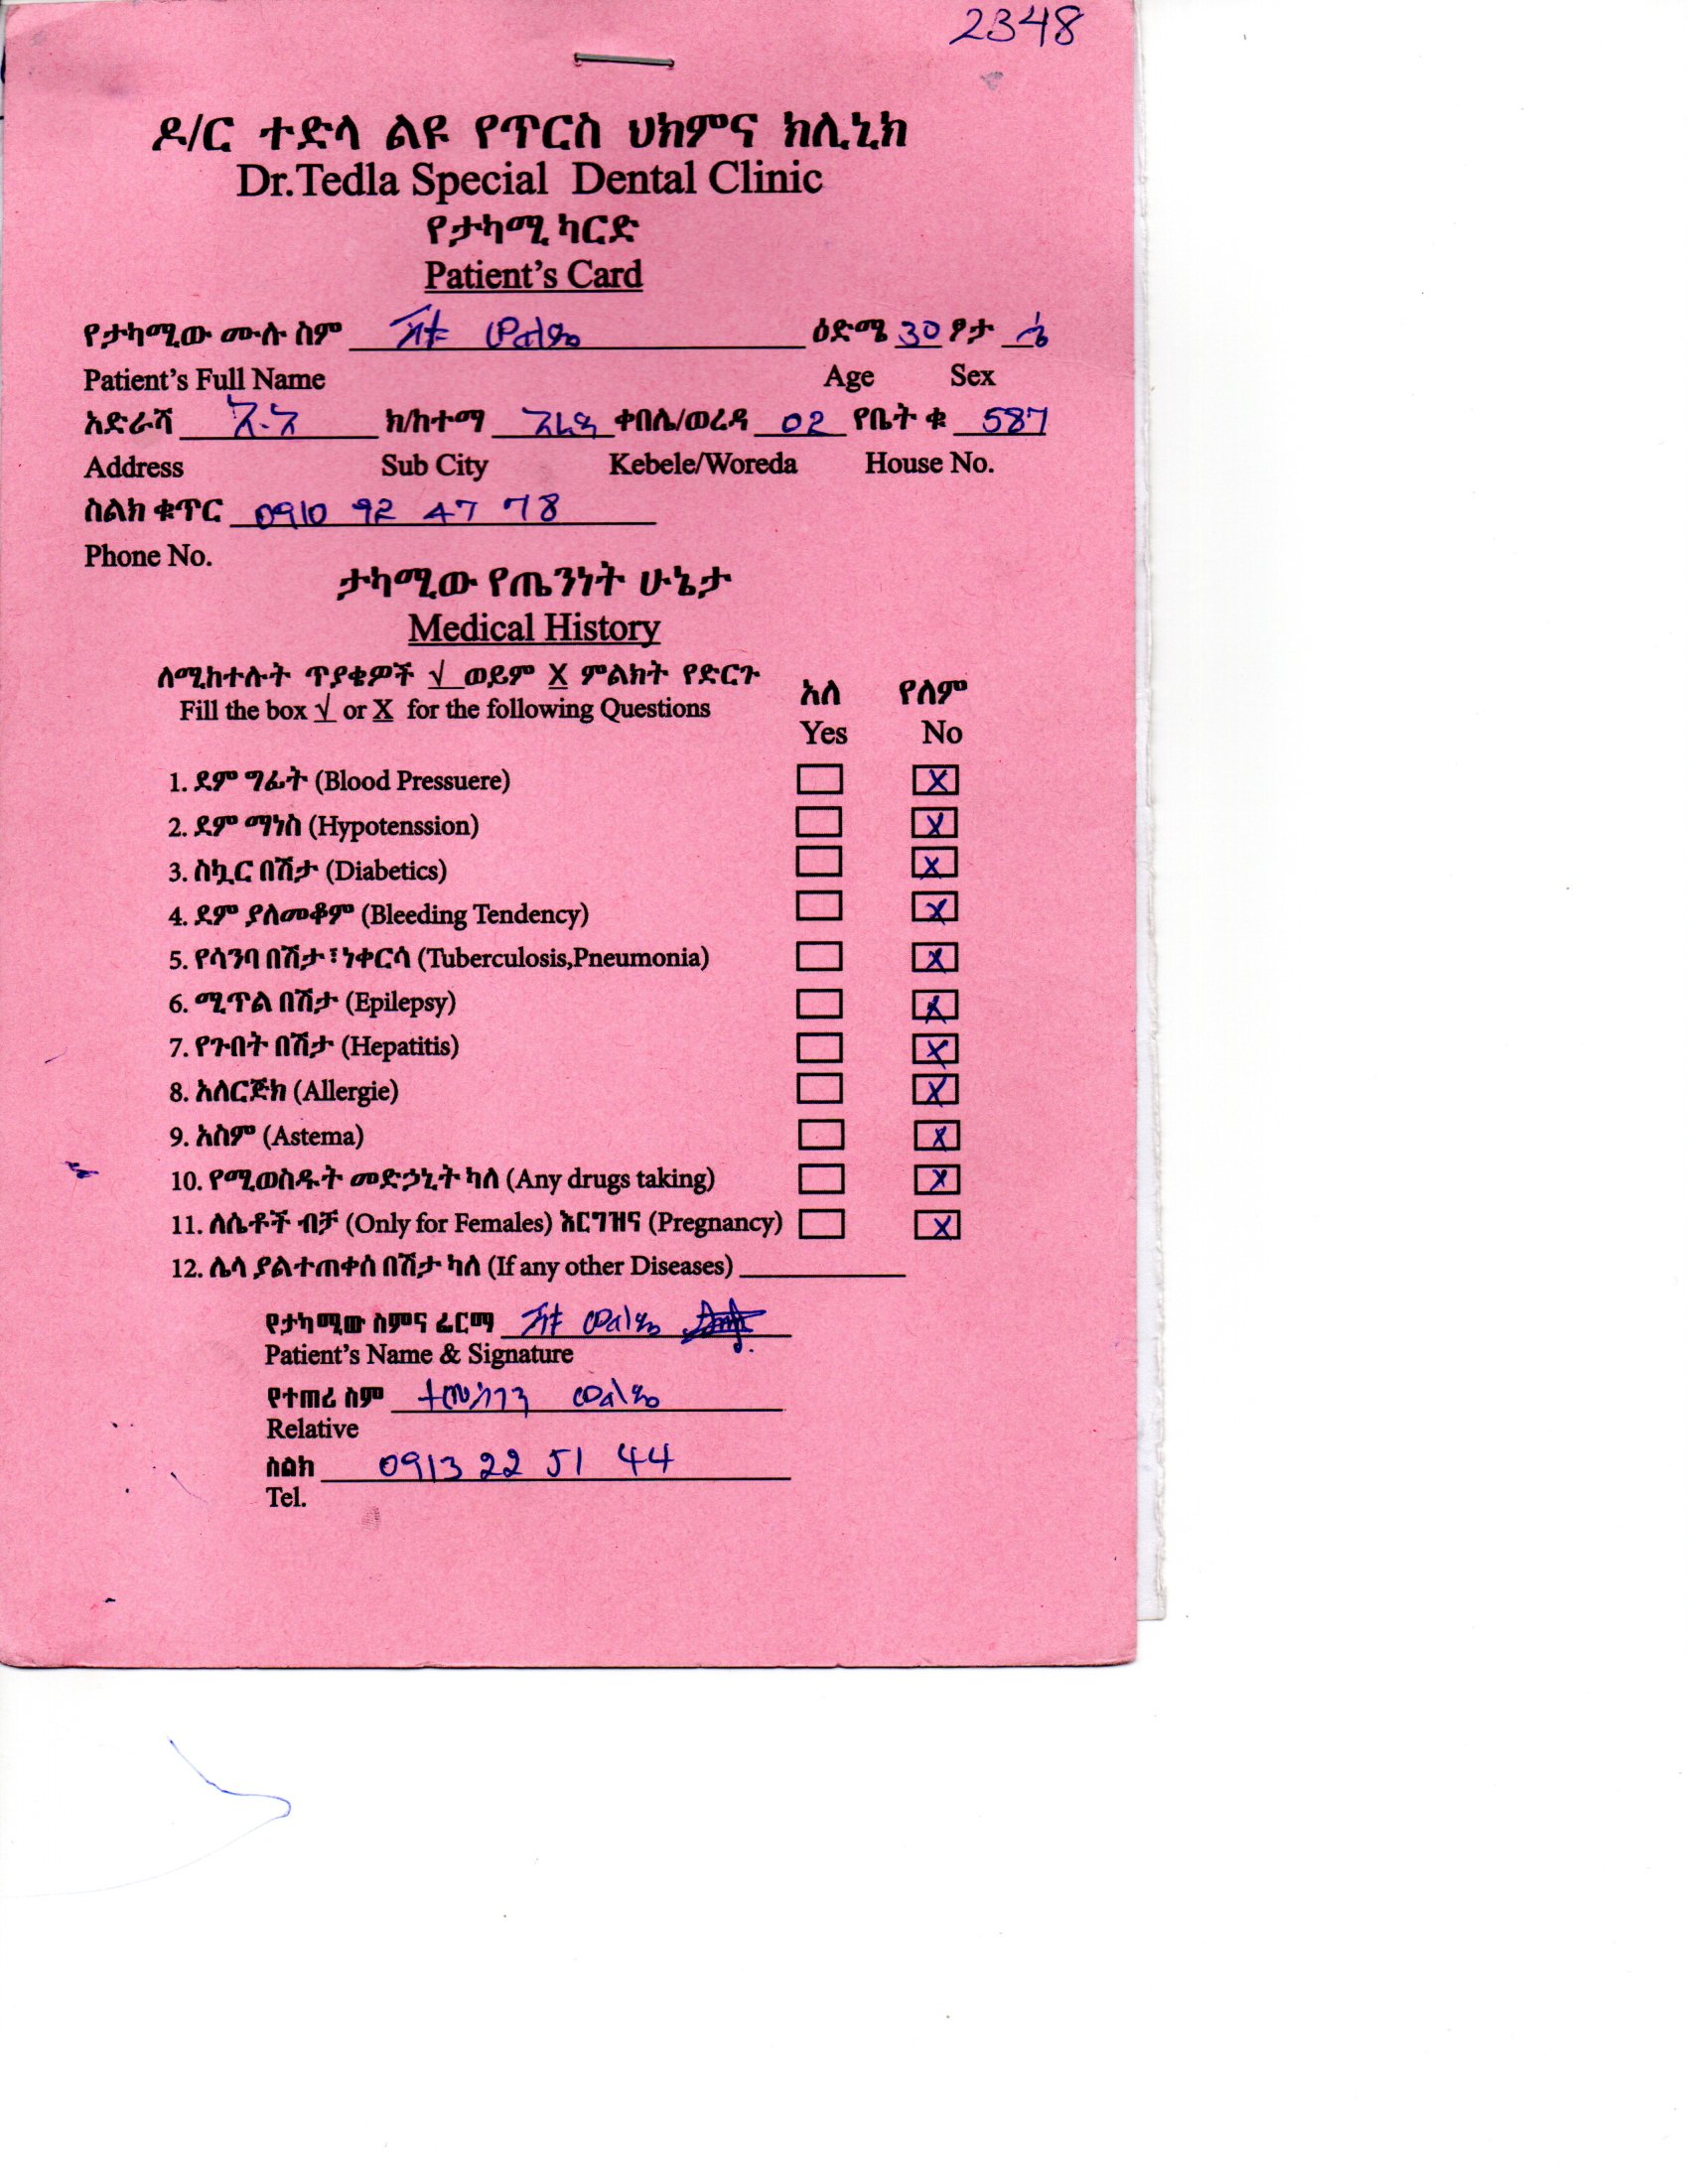 2348
ዶ/ር ተድላ ልዩ የጥርስ ህክምና ክሊኒክ
Dr.Tedla Special Dental Clinic
የታካሚ ካርድ
Patient's Card
የታካሚው ሙሉ ስም ዕድሜ 30 ፆታ ሴ
Patient's Full Name Age Sex
አድራሻ አ.አ ክ/ከተማ አራዳ ቀበሌ/ወረዳ 02 የቤት ቁ 587
Address Sub City Kebele/Woreda House No.
ስልክ ቁጥር 0910 92 47 78
Phone No.
ታካሚው የጤንነት ሁኔታ
Medical History
ለሚከተሉት ጥያቄዎች √ ወይም X ምልክት የድርጉ
Fill the box √ or X for the following Questions
አለ የለም
Yes No
1. ደም ግፊት (Blood Pressuere) X
2. ደም ማነስ (Hypotenssion) X
3. ስኳር በሽታ (Diabetics) X
4. ደም ያለመቆም (Bleeding Tendency) X
5. የሳንባ በሽታ፣ነቀርሳ (Tuberculosis,Pneumonia) X
6. ሚጥል በሽታ (Epilepsy) X
7. የጉበት በሽታ (Hepatitis) X
8. አለርጅክ (Allergie) X
9. አስም (Astema) X
10. የሚወስዱት መድኃኒት ካለ (Any drugs taking) X
11. ለሴቶች ብቻ (Only for Females) እርግዝና (Pregnancy) X
12. ሌላ ያልተጠቀሰ በሽታ ካለ (If any other Diseases)
የታካሚው ስምና ፊርማ
Patient's Name & Signature
የተጠሪ ስም ተመስገን
Relative
ስልክ 0913 22 51 44
Tel.